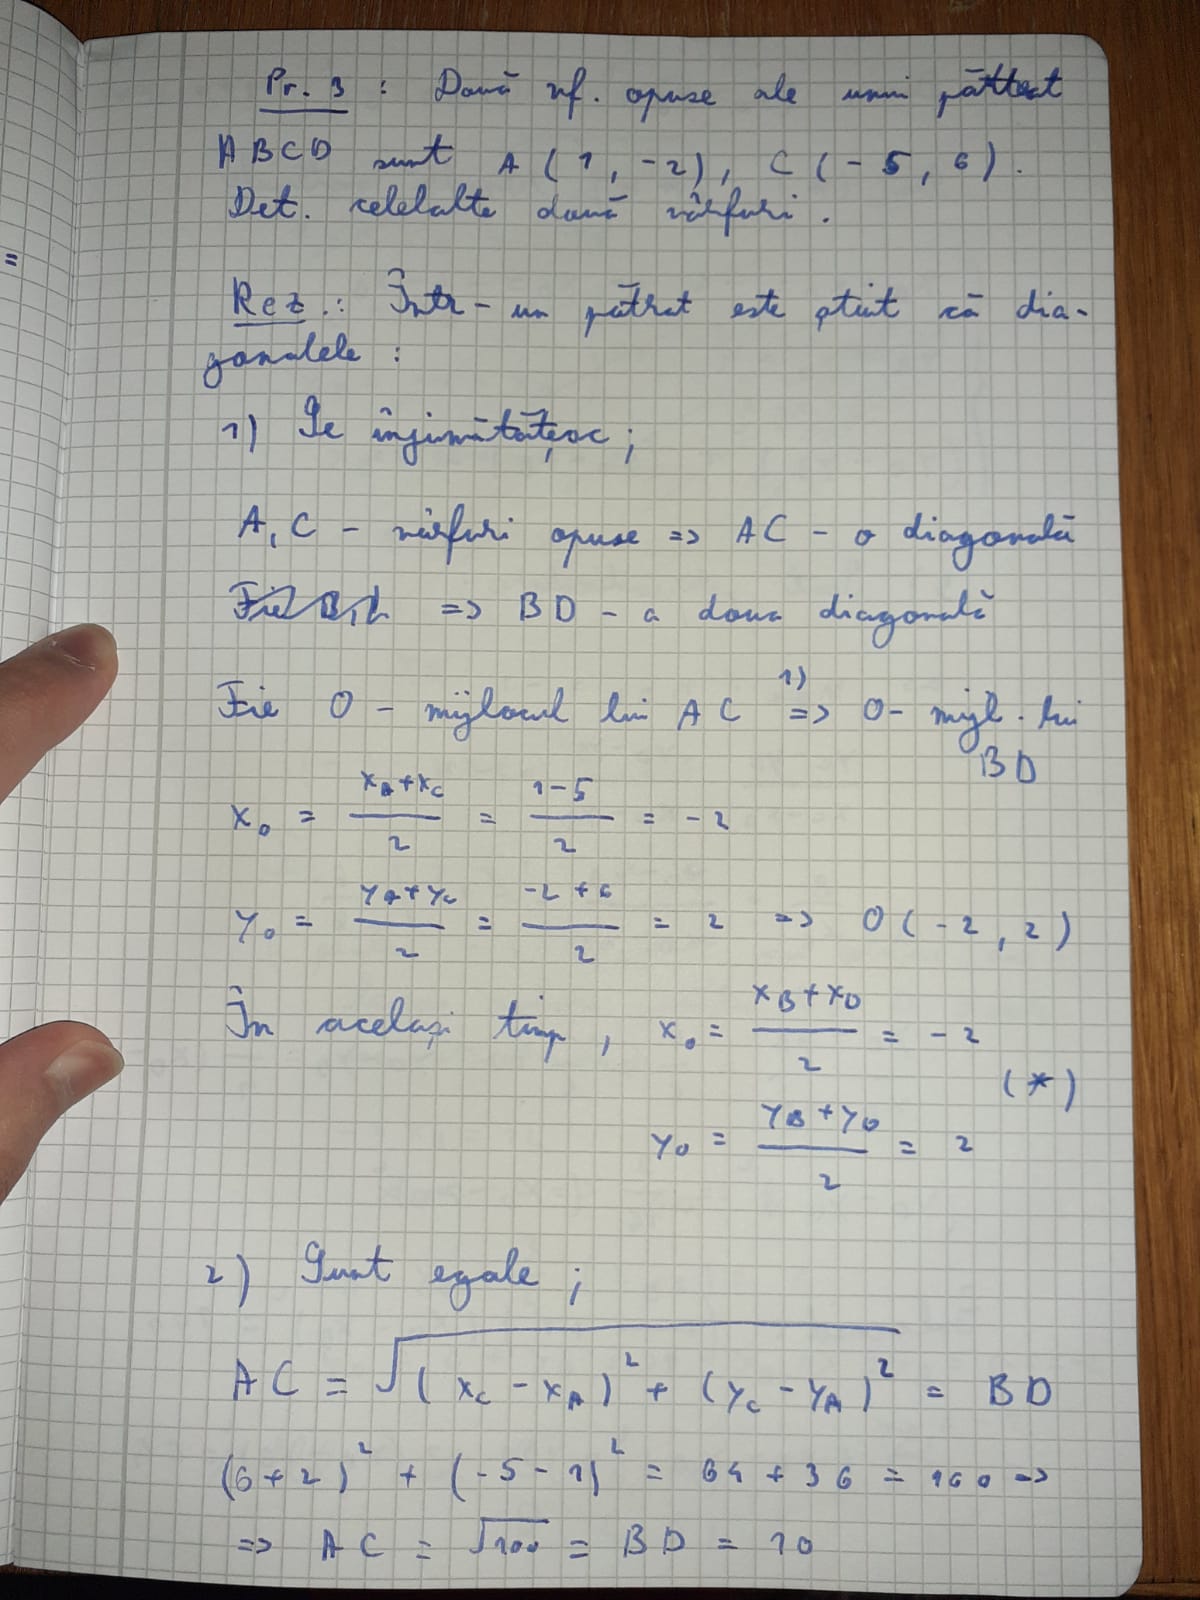 =
Pr. 3 : Două vf. opuse ale unui pătrat
ABCD sunt A (1, -2), C (-5, 6).
Det. celelalte două vârfuri.
Rez.: Într-un pătrat este știut că dia-
gonalele :
1) Se înjumătățesc ;
A, C - vârfuri opuse => AC - o diagonală
=> BD - a doua diagonală
Fie O - mijlocul lui AC 1) => O - mijl. lui
BD
x₀ = (x_A + x_C)/2 = (1-5)/2 = -2
y₀ = (y_A + y_C)/2 = (-2+6)/2 = 2 => O(-2, 2)
În același timp, x₀ = (x_B + x_D)/2 = -2
(*)
y₀ = (y_B + y_D)/2 = 2
2) Sunt egale ;
AC = √((x_C - x_A)² + (y_C - y_A)²) = BD
(6+2)² + (-5-1)² = 64 + 36 = 100 =>
=> AC = √100 = BD = 10